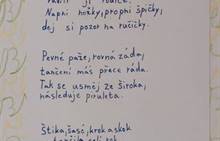 Napni nožky, propni špičky,
dej si pozor na ručičky.
Pevné paže, rovná záda,
tančení máš přece ráda.
Tak se usměj ze široka,
následuje pirueta.
Štika, šasé, krok a skok